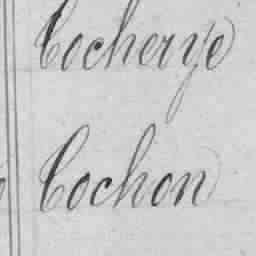 Cocherye
Cochon